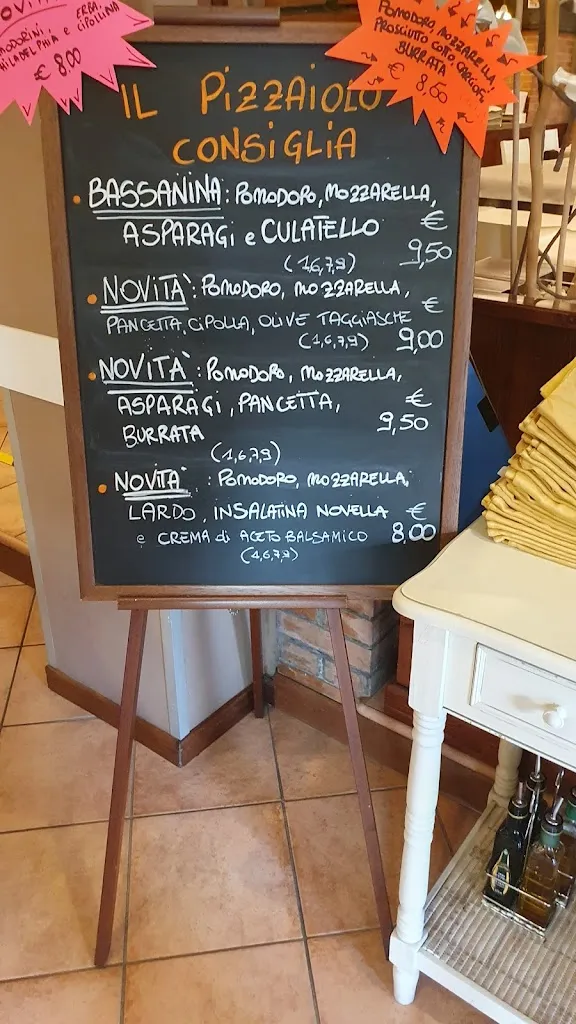 NOVITÀ
ERBA
CIPOLLINA
PHILADELPHIA e
€ 8,00
POMODORO, MOZZARELLA,
PROSCIUTTO COTTO, CARCIOFI,
BURRATA
€ 8,60
IL PIZZAIOLO
CONSIGLIA
• BASSANINA: POMODORO, MOZZARELLA,
ASPARAGI e CULATELLO €
(1,6,7,9) 9,50
• NOVITÀ: POMODORO, MOZZARELLA,
PANCETTA, CIPOLLA, OLIVE TAGGIASCHE €
(1,6,7,9) 9,00
• NOVITÀ: POMODORO, MOZZARELLA,
ASPARAGI, PANCETTA, €
BURRATA 9,50
(1,6,7,9)
• NOVITÀ : POMODORO, MOZZARELLA,
LARDO, INSALATINA NOVELLA €
e CREMA di ACETO BALSAMICO 8,00
(1,6,7,9)